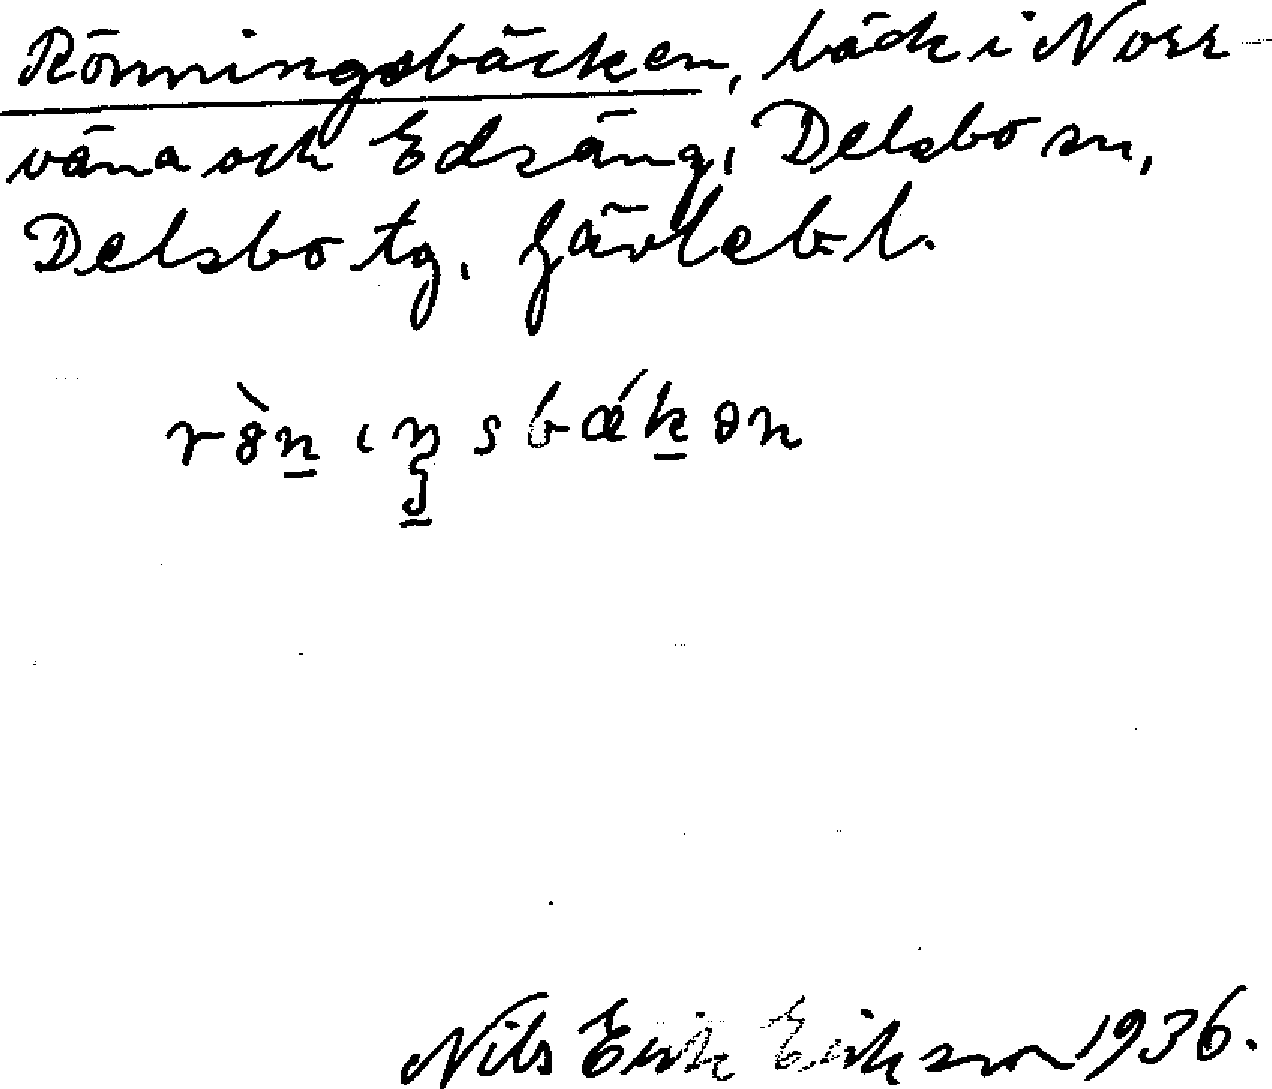 Rönningsbäcken, bäck i Norr
väna och Edsäng, Delsbo sn,
Delsbo tg, Gävleb. l.
Nils Erik Erikson 1936.